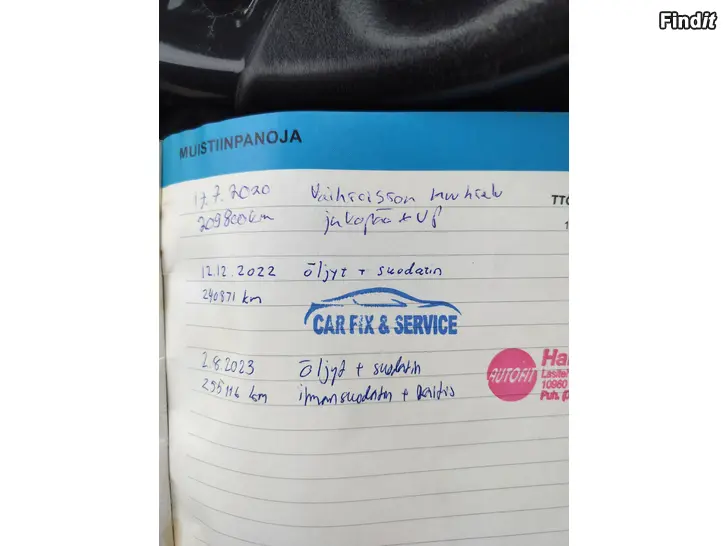 Findit
MUISTIINPANOJA
17.7.2020
209800km jakopää + VP
TTO
1
12.12.2022 öljyt + suodatin
240871 km
CAR FIX & SERVICE
2.8.2023 öljyt + suodatin
255116 km ilmansuodatin + raitis
AUTOFIT
Ha
Lasitei
10960
Puh. (0